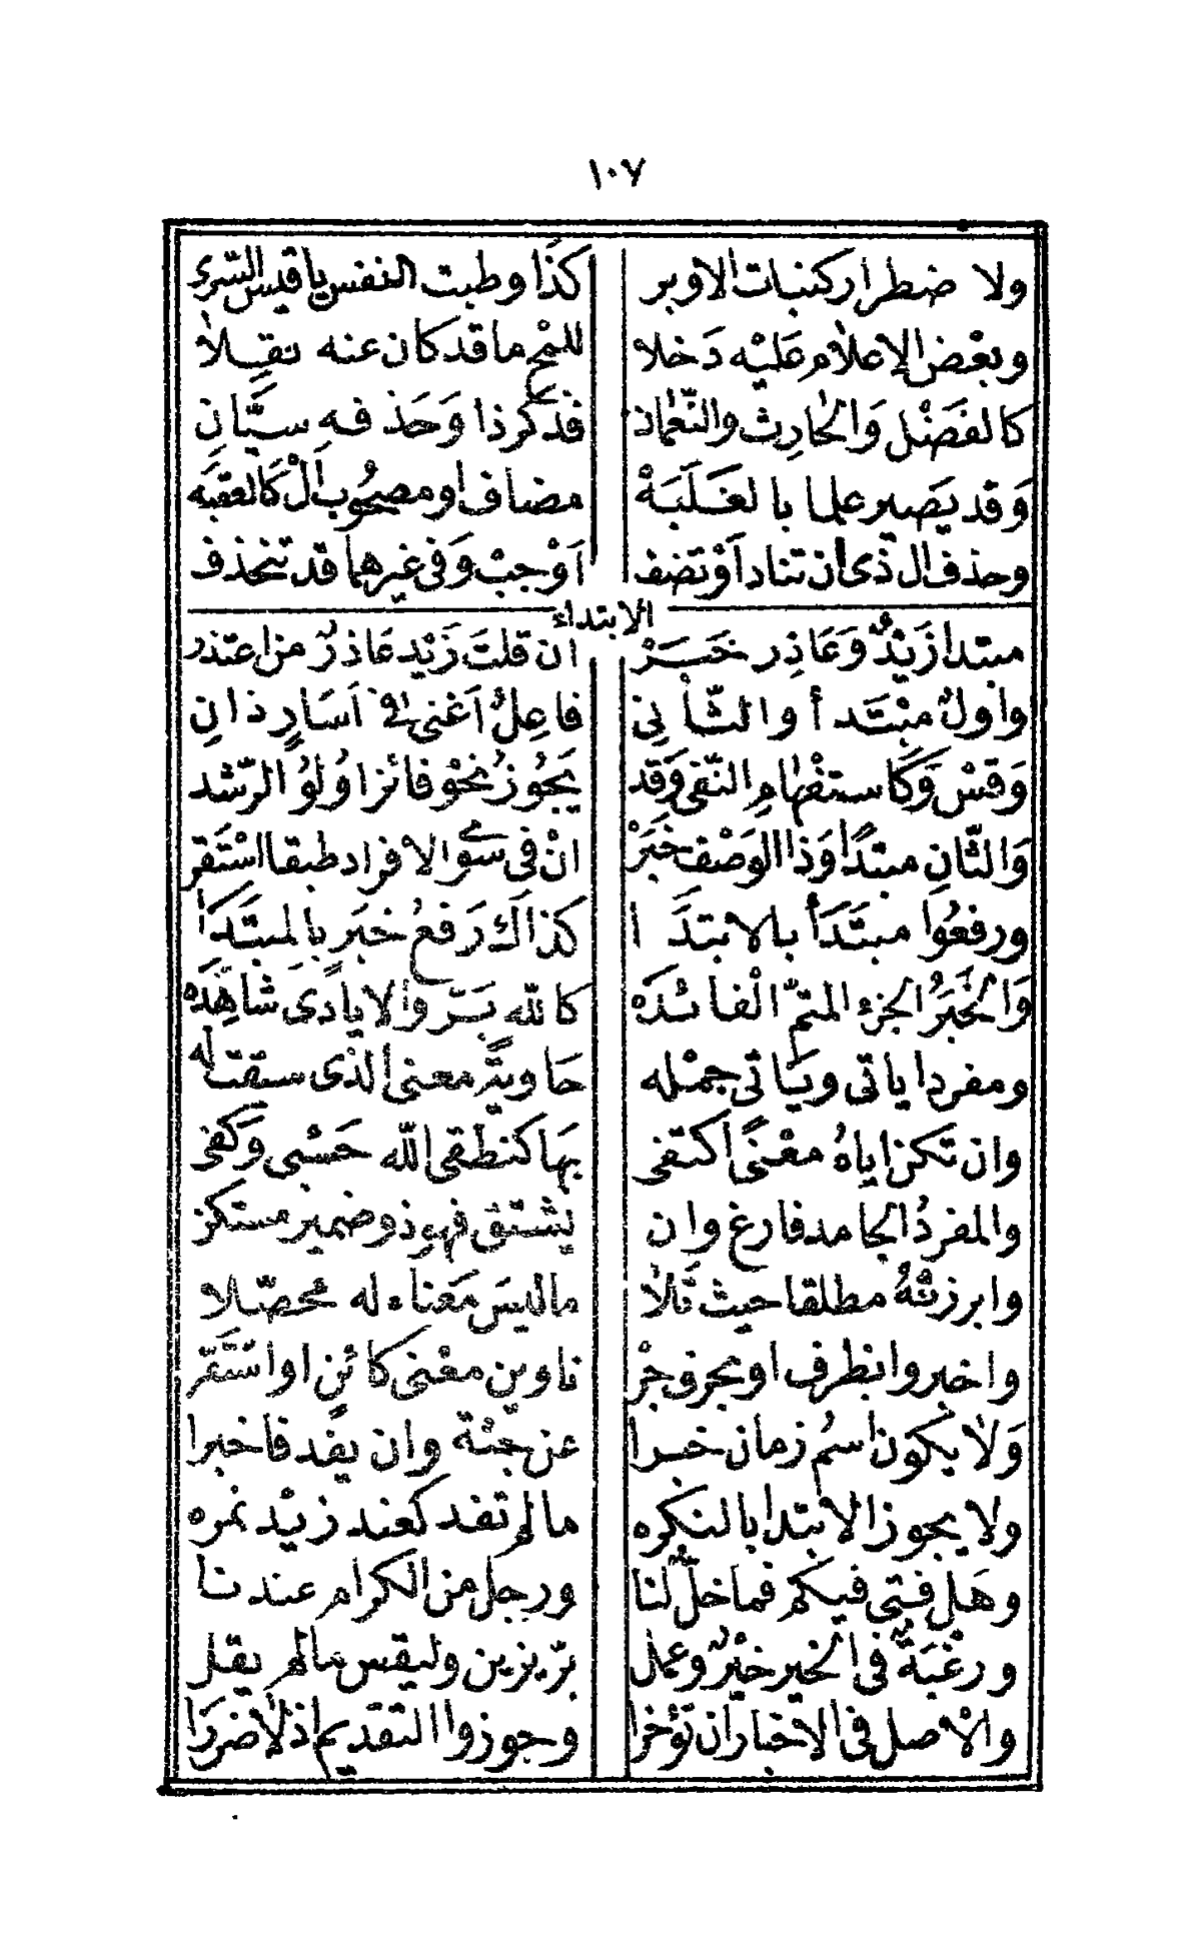 ١٠٧
ولا ضطرار كنبات الاوبر كذا وطبت النفس يا قيس السرى
وبعْض الاعلام عَليْه دَخلا للمْح ما قد كان عنه نقلا
كالفَضْل وَالحَارِث والنّعمان فذكر ذا وَحَذفه سيّانِ
وَقد يَصير علما بالغَلَبَهْ مضاف او مصحُوب اَلْ كالعقبَه
وحذف ال ذى ان تناد اَوْ تضف اَوْجبْ وَفى غيرهما قد تنحذف
الابتداء
مبتدا زَيْدٌ وَعَاذِر خَبَرْ ان قلتَ زَيْد عَاذرٌ من اعتذر
واولٌ مبْتَدأ والثّانِى فاعِلٌ اَغنى فى اَسَارٍ ذانِ
وَقسْ وَكَاستفْهَامِ النّفى وَقد يَجُوزُ نحْوُ فائز اُولُو الرّشد
وَالثّانِ مبتدًا وَذا الوَصْف خَبَرْ انْ فى سوى الافراد طبقا اسْتَقر
ورفعُوا مبتَدَأ بالابتدَا كذاك رَفعُ خبَرٍ بالمبتَدَا
وَالخَبَرُ الجزء المتمّ الْفائدَهْ كالله بَرّ والايادى شاهِدَه
ومفردا ياتى وياتى جمْله حَاويَةً معنى الذى سيقت له
وان تكن اياهُ معْنًى اكتفى بهَا كنطقى الله حَسْبى وَكفى
والمفردُ الجامد فارغ وان يشتق فهو ذو ضمير مستكن
وابرزنهُ مطلقا حيث تَلا ما ليسَ مَعناه له محصّلا
واخبروا بظرف او بحرف جرْ ناوين معْنى كائنٍ او اسْتَقَرّ
وَلا يكون اسمُ زمان خبرا عن جثة وان يفد فاخبرا
ولا يجوز الابتدا بالنكره ما لم تفد كعند زيْد نمره
وهَل فتى فيكم فما خلٌّ لنا ورجل من الكرام عندنا
ورغْبَةٌ فى الخير خيْرٌ وعمل برّ يزين وليقس ما لم يقل
والاصل فى الاخبار ان تؤخرا وجوزوا التقديم اذ لا ضررا